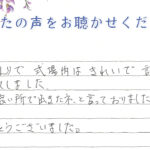 たの声をお聴かせくだ
りで式場内はきれいで
しました。
い所で出来たネと言っておりました
うございました。